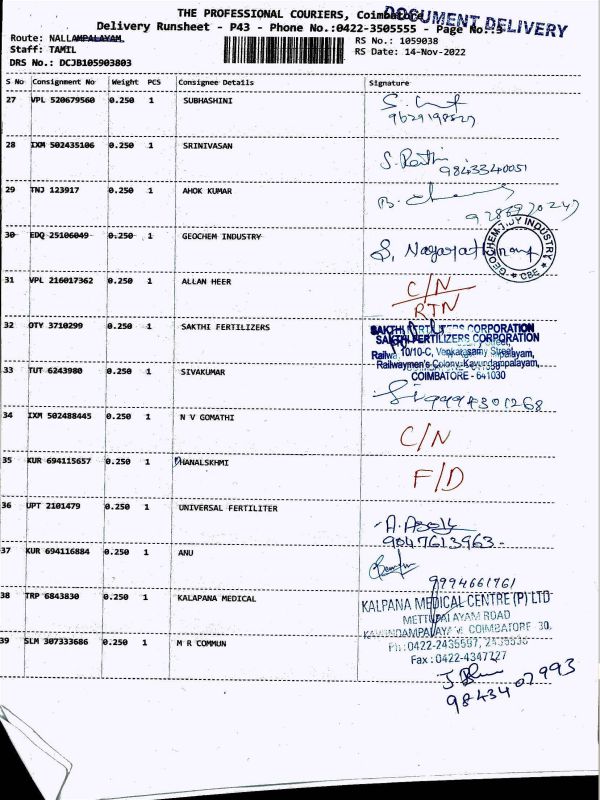 THE PROFESSIONAL COURIERS, Coimbatore
DOCUMENT DELIVERY
Delivery Runsheet - P43 - Phone No.:0422-3505555 - Page No.:3
Route: NALLAMPALAYAM
RS No.: 1059038
Staff: TAMIL
RS Date: 14-Nov-2022
DRS No.: DCJB105903803
S No Consignment No Weight PCS Consignee Details Signature
27 VPL 520679560 0.250 1 SUBHASHINI
28 IXM 502435106 0.250 1 SRINIVASAN
9843340051
29 TNJ 123917 0.250 1 AHOK KUMAR
30 EDQ 25106049 0.250 1 GEOCHEM INDUSTRY
GEOCHEM INDUSTRY * CBE *
31 VPL 216017362 0.250 1 ALLAN HEER C/N
RTN
32 OTY 3710299 0.250 1 SAKTHI FERTILIZERS
SAKTHI FERTILIZERS CORPORATION
10/10-C, Venkatasamy Street,
Railwaymen's Colony, Kavundampalayam,
COIMBATORE - 641030
33 TUT 6243980 0.250 1 SIVAKUMAR
9994301268
34 IXM 502488445 0.250 1 N V GOMATHI C/N
35 KUR 694115657 0.250 1 DHANALSKHMI F/D
36 UPT 2101479 0.250 1 UNIVERSAL FERTILITER
9047613963
37 KUR 694116884 0.250 1 ANU
9994661761
38 TRP 6843830 0.250 1 KALAPANA MEDICAL
KALPANA MEDICAL CENTRE (P) LTD
METTUPALAYAM ROAD
KAVUNDAMPALAYAM COIMBATORE 30.
Ph : 0422-2435597,
Fax : 0422-4347727
39 SLM 307333686 0.250 1 M R COMMUN
9843407993